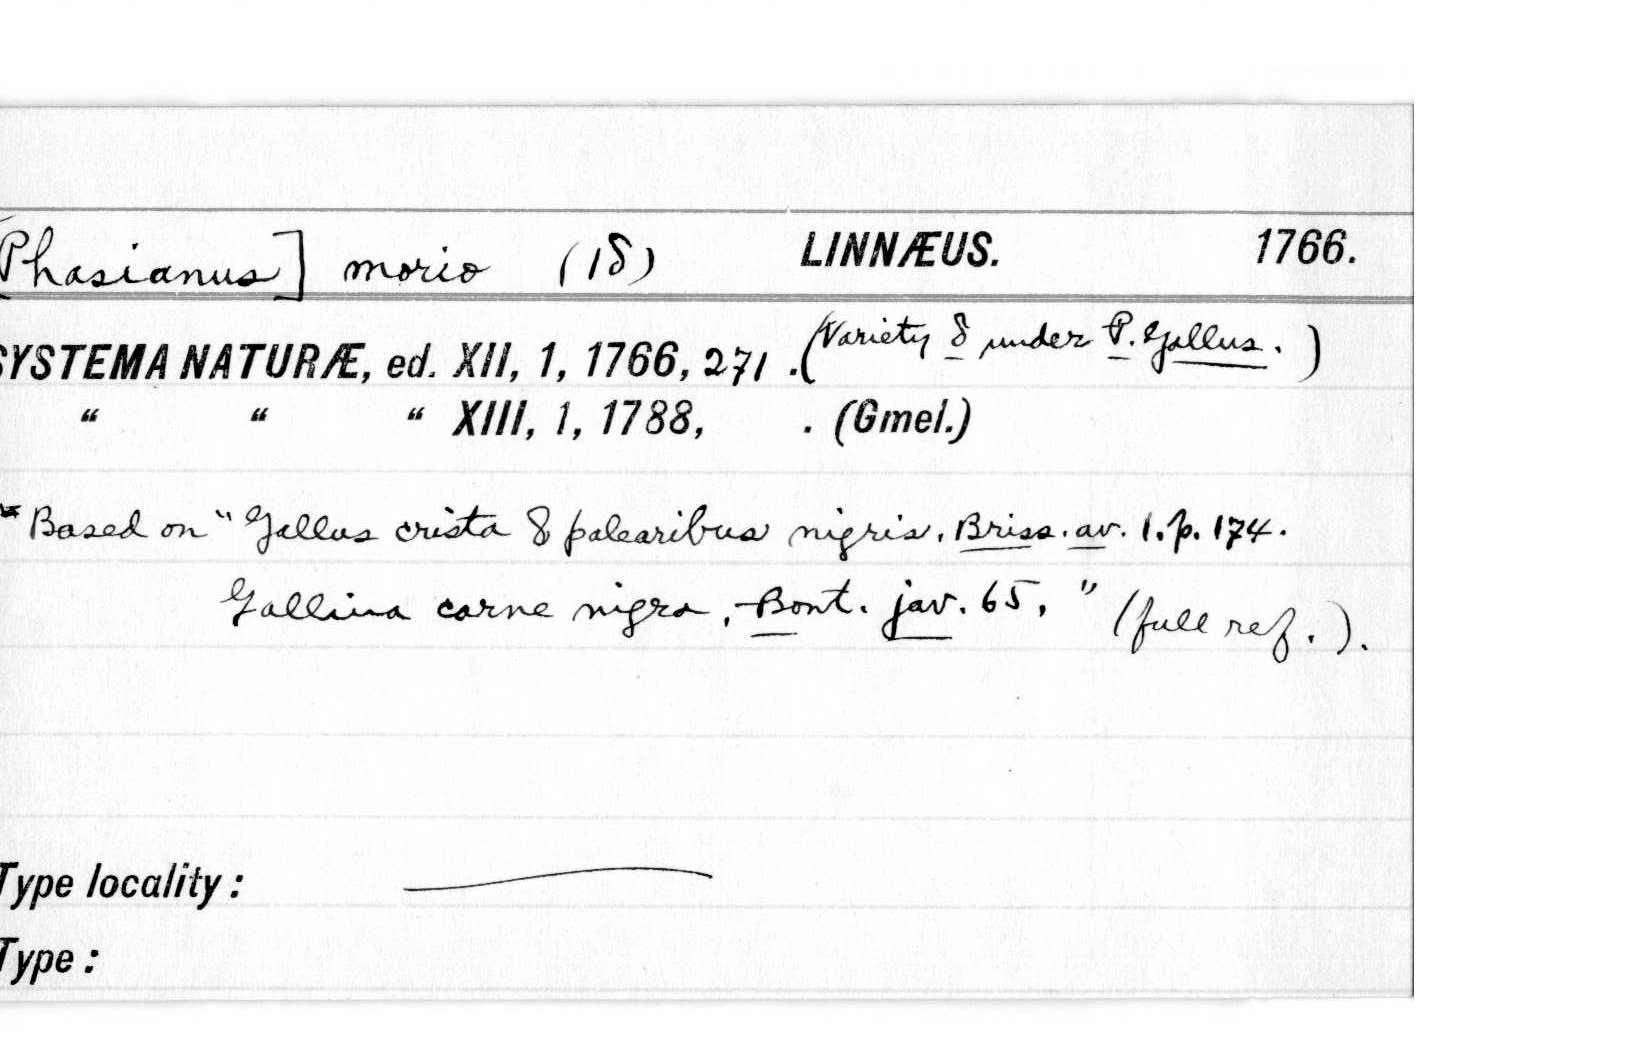 [Phasianus] morio (1δ) LINNÆUS. 1766.
SYSTEMA NATURÆ, ed. XII, 1, 1766, 271 . (Variety δ under P. Gallus.)
“ “ “ XIII, 1, 1788, . (Gmel.)
* Based on "Gallus crista & palearibus nigris. Briss. av. 1. p. 174.
Gallina carne nigra, Bont. jav. 65." (full ref.).
Type locality :
Type :